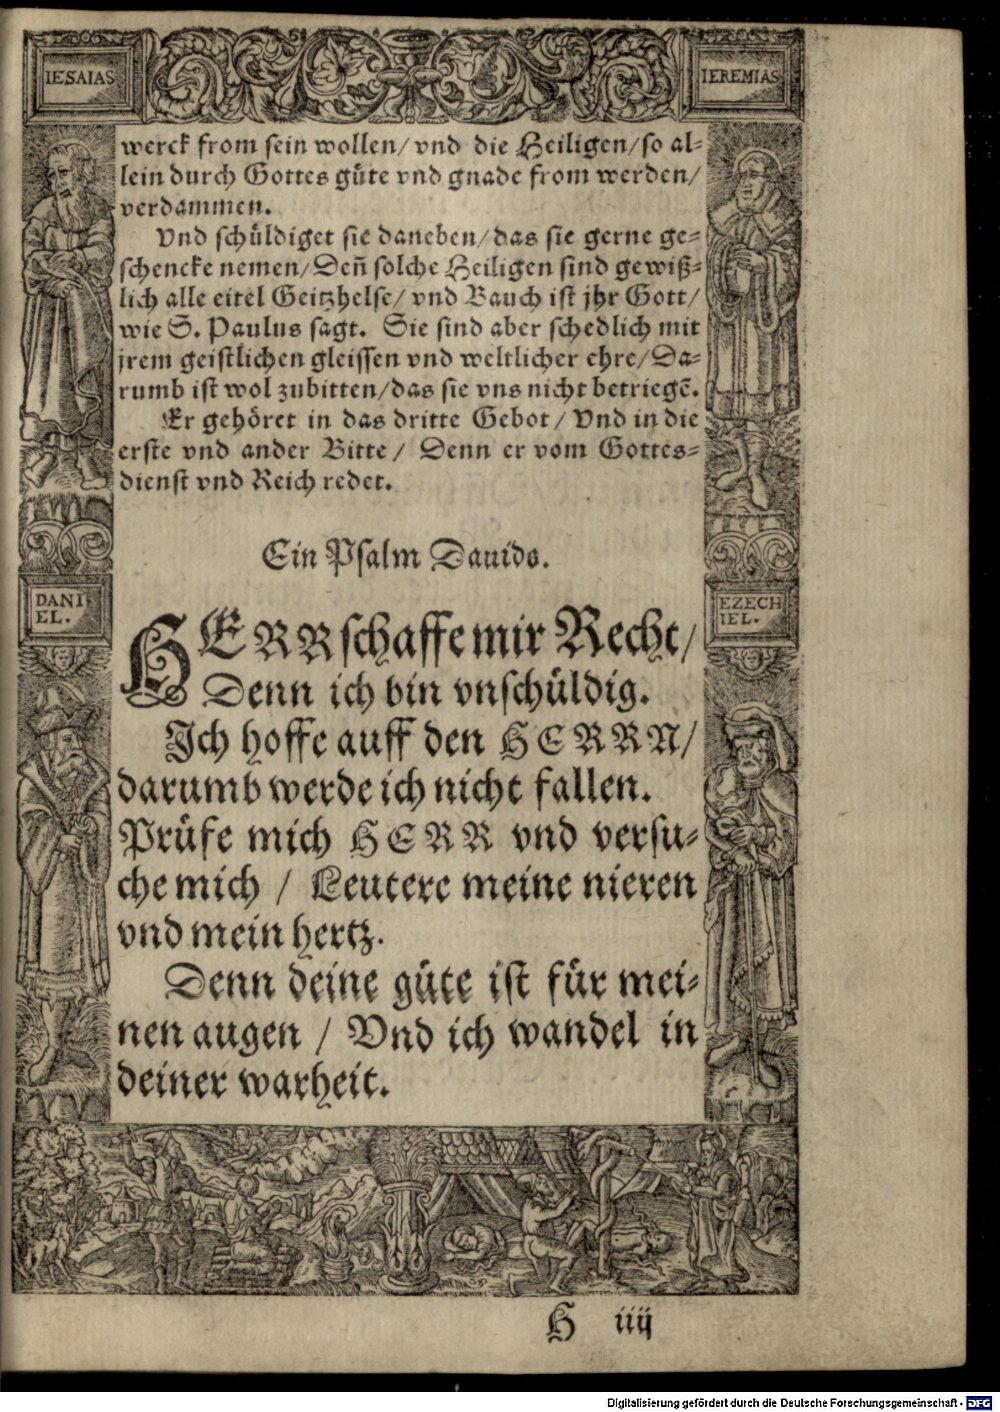 IESAIAS
IEREMIAS
werck from sein wollen/ vnd die Heiligen/ so al⸗
lein durch Gottes güte vnd gnade from werden/
verdammen.
Vnd schüldiget sie daneben/ das sie gerne ge⸗
schencke nemen/ Deñ solche Heiligen sind gewiß⸗
lich alle eitel Geitzhelse/ vnd Bauch ist jhr Gott/
wie S. Paulus sagt. Sie sind aber schedlich mit
jrem geistlichen gleissen vnd weltlicher ehre/ Da⸗
rumb ist wol zubitten/ das sie vns nicht betriegẽ.
Er gehöret in das dritte Gebot/ Vnd in die
erste vnd ander Bitte/ Denn er vom Gottes⸗
dienst vnd Reich redet.
Ein Psalm Dauids.
DANI
EL.
EZECH
IEL.
HERR schaffe mir Recht/
Denn ich bin vnschüldig.
Ich hoffe auff den HERRN/
darumb werde ich nicht fallen.
Prüfe mich HERR vnd versu⸗
che mich / Leutere meine nieren
vnd mein hertz.
Denn deine güte ist für mei⸗
nen augen / Vnd ich wandel in
deiner warheit.
H iiij
Digitalisierung gefördert durch die Deutsche Forschungsgemeinschaft - DFG